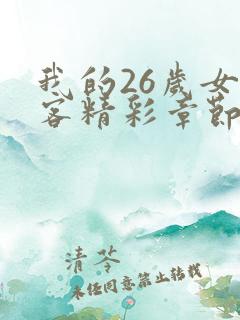 我的26歲女
客精彩章節
清苓
未經同意禁止轉載